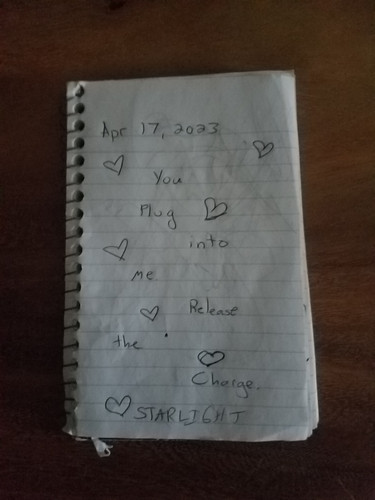 Apr 17, 2023
You
Plug
into
me
Release
the
Charge.
STARLIGHT